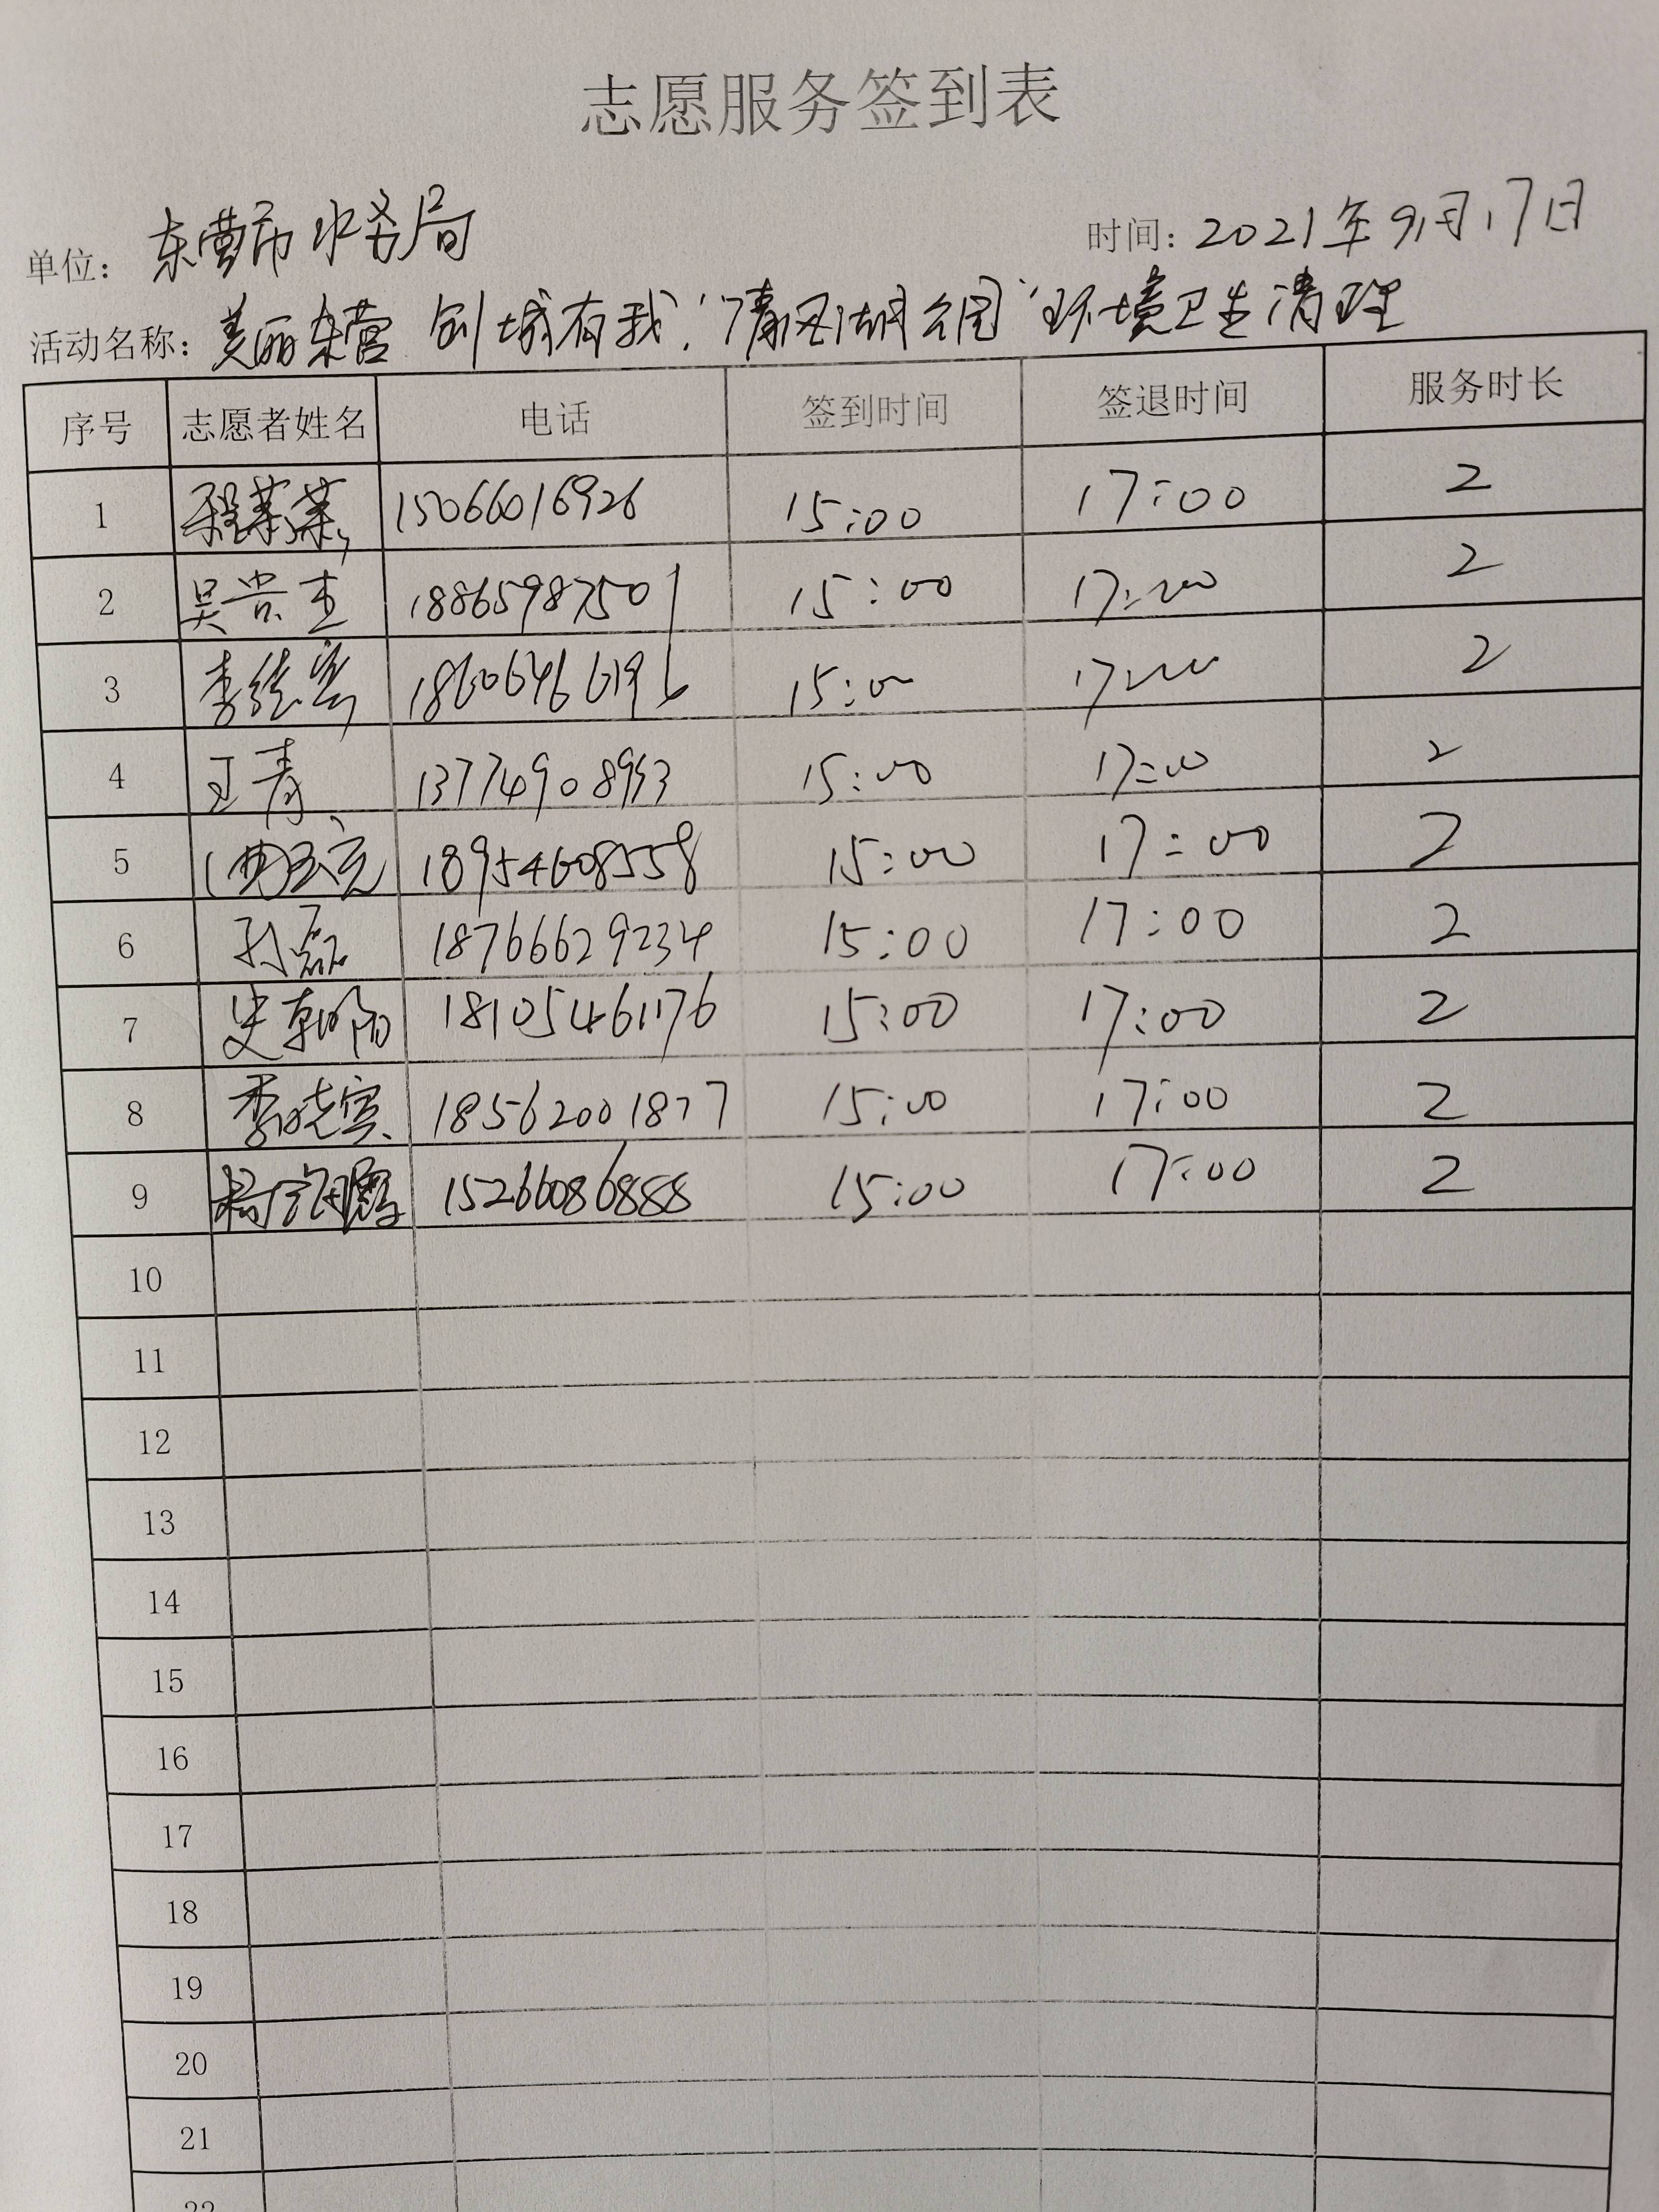 志愿服务签到表
单位: 东营市水务局 时间: 2021年9月17日
活动名称: 美丽东营 创城有我,"清风湖公园"环境卫生清理
序号 志愿者姓名 电话 签到时间 签退时间 服务时长
1 程莱莱 15066016926 15:00 17:00 2
2 吴崇杰 18865987501 15:00 17:00 2
3 李德宾 15:00 17:00 2
4 王青 13774908953 15:00 17:00 2
5 18954608558 15:00 17:00 2
6 孙磊 18766629234 15:00 17:00 2
7 史朝阳 18105461176 15:00 17:00 2
8 李晓宾 18562001877 15:00 17:00 2
9 15266086888 15:00 17:00 2
10
11
12
13
14
15
16
17
18
19
20
21
22